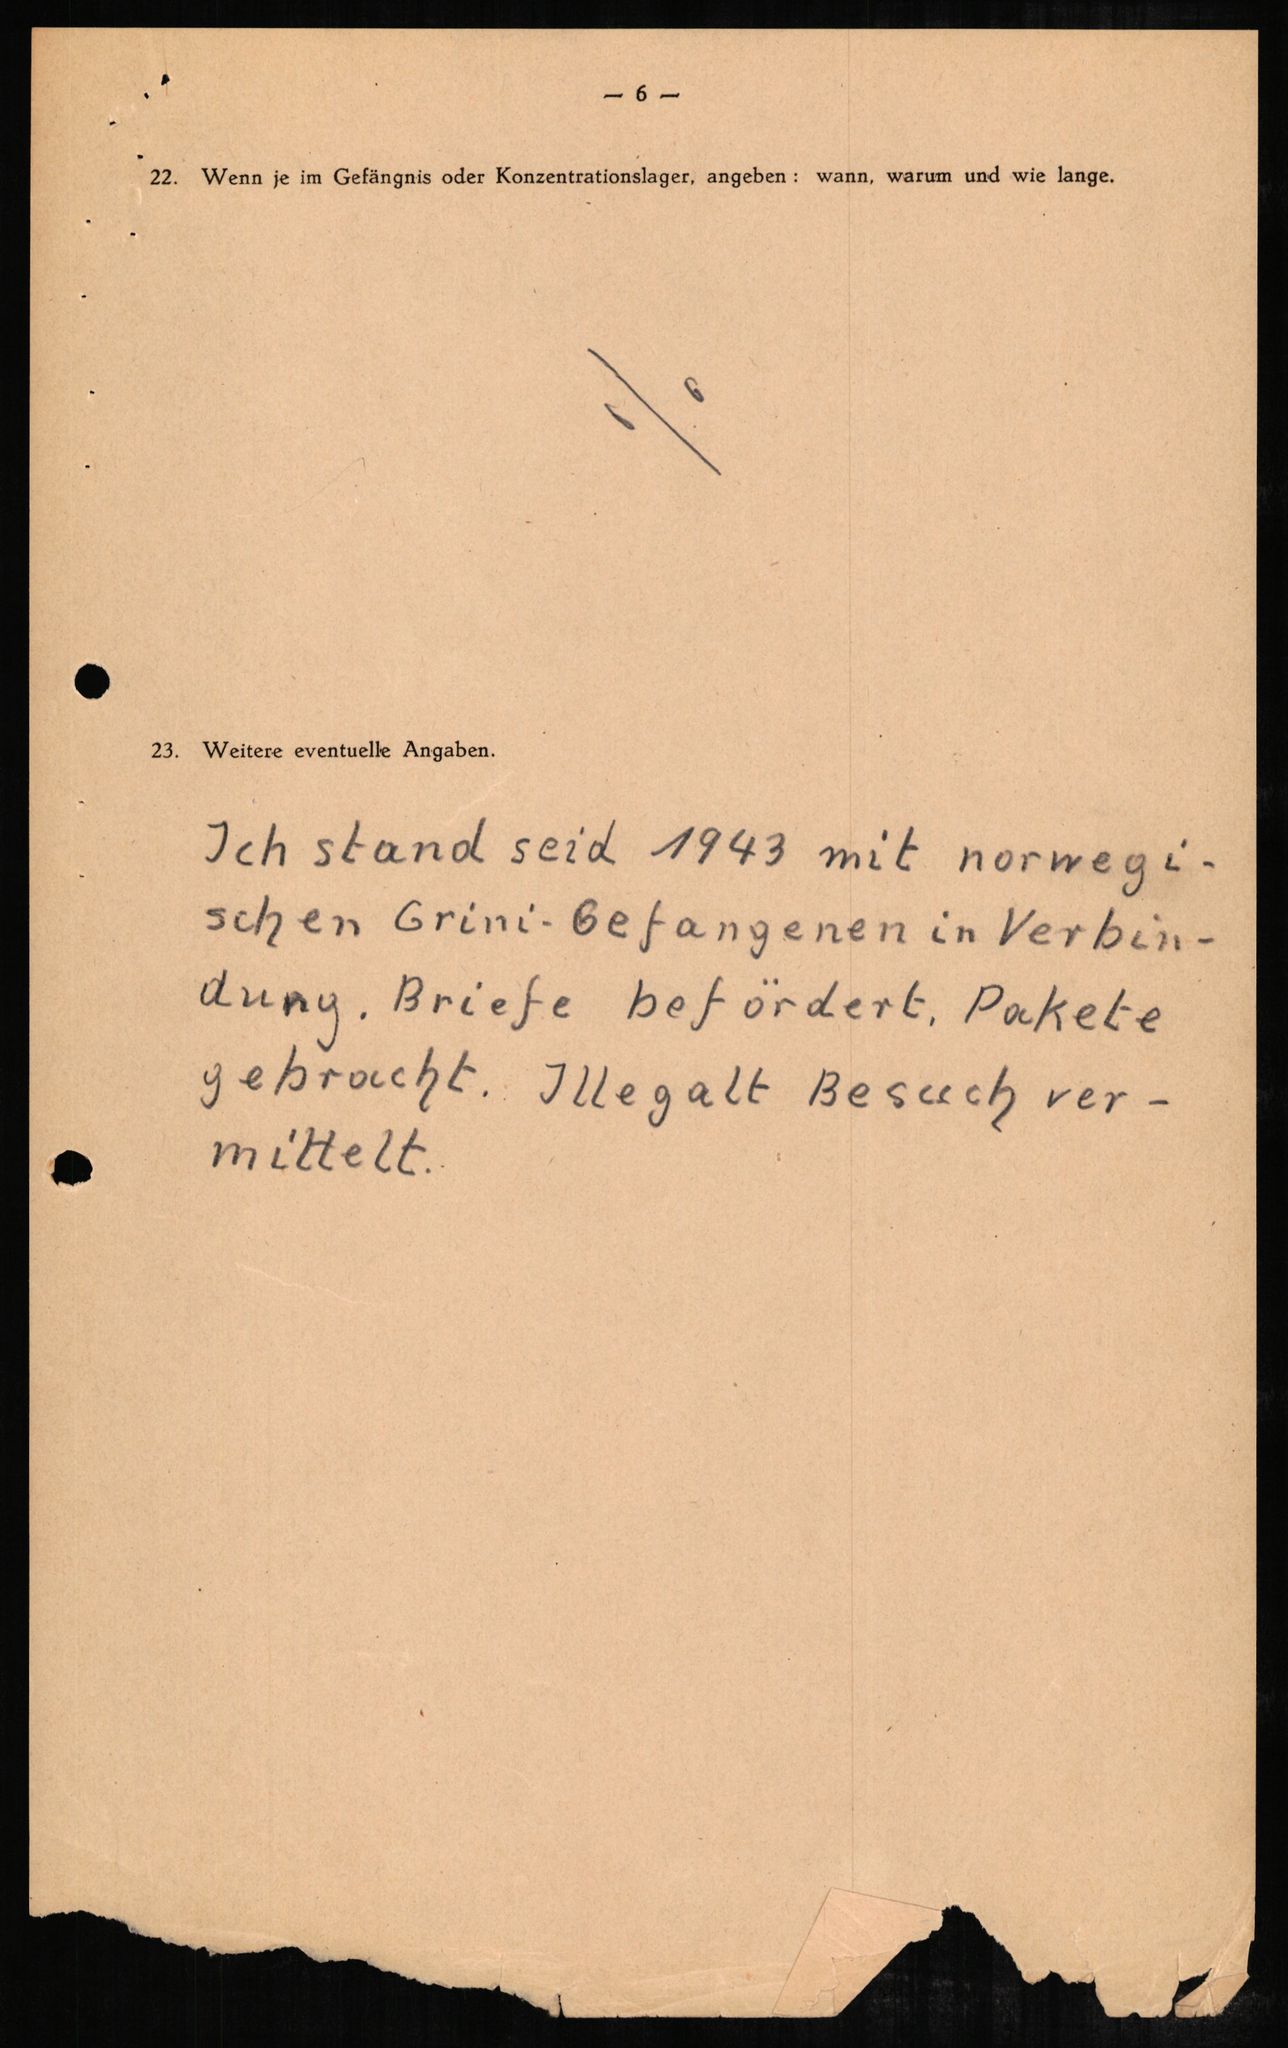 — 6 —
22. Wenn je im Gefängnis oder Konzentrationslager, angeben: wann, warum und wie lange.
23. Weitere eventuelle Angaben.
Ich stand seid 1943 mit norwegi-
schen Grini-Gefangenen in Verbin-
dung. Briefe befördert, Pakete
gebracht. Illegalt Besuch ver-
mittelt.